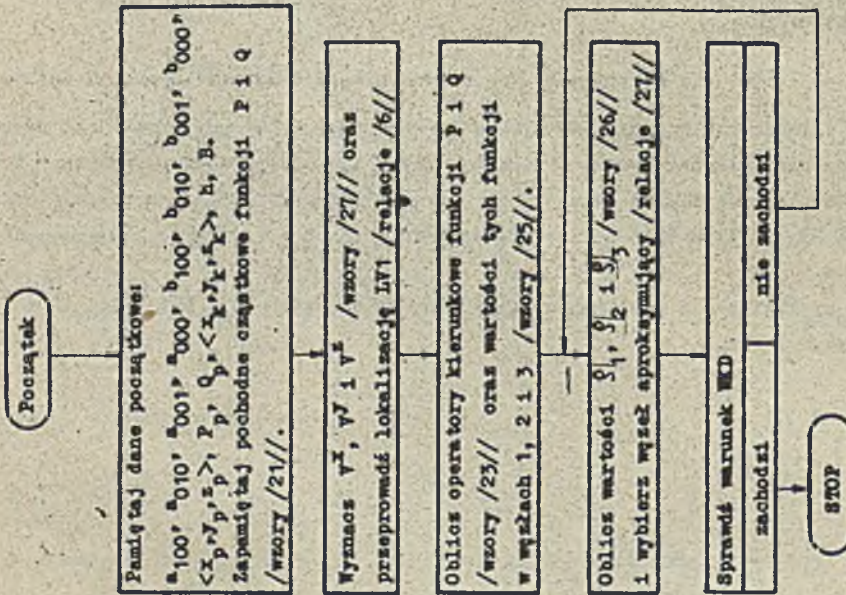 Początek
Pamiętaj dane początkowe:
a100, a010, a001, a000, b100, b010, b001, b000,
<xp,yp,zp>, Pp, Qp, <xk,yk,zk>, h, B.
Zapamiętaj pochodne cząstkowe funkcji P i Q
/wzory /21//.
Wyznacz vx, vy i vz /wzory /27// oraz
przeprowadź lokalizację LV1 /relacje /6//
Oblicz operatory kierunkowe funkcji P i Q
/wzory /23// oraz wartości tych funkcji
w węzłach 1, 2 i 3 /wzory /25//.
Oblicz wartości ρ1, ρ2 i ρ3 /wzory /26//
i wybierz węzeł aproksymujący /relacje /27//
Sprawdź warunek WKD
zachodzi | nie zachodzi
STOP